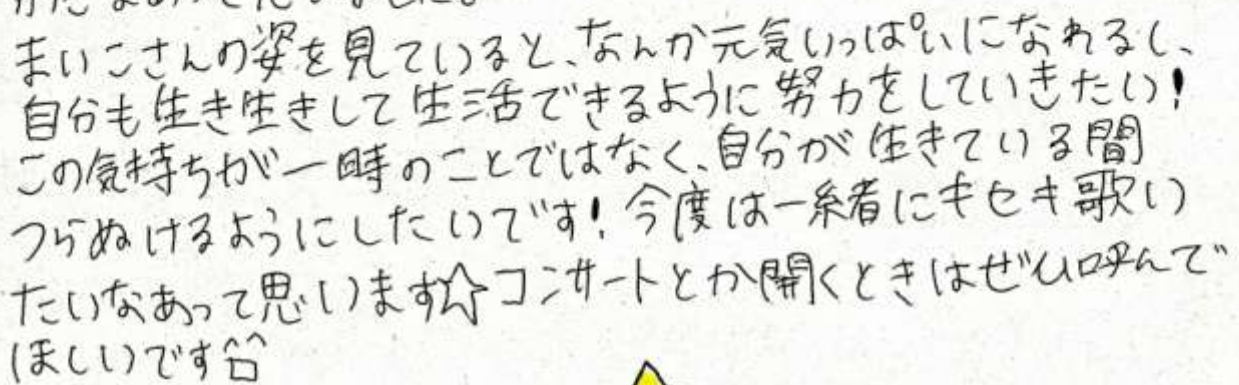 まいこさんの姿を見ていると、なんか元気いっぱいになれるし、
自分も生き生きして生活できるように努力をしていきたい!
この気持ちが一時のことではなく、自分が生きている間
つらぬけるようにしたいです!今度は一緒にキセキ歌い
たいなあって思います☆コンサートとか開くときはぜひ呼んで
ほしいです^^